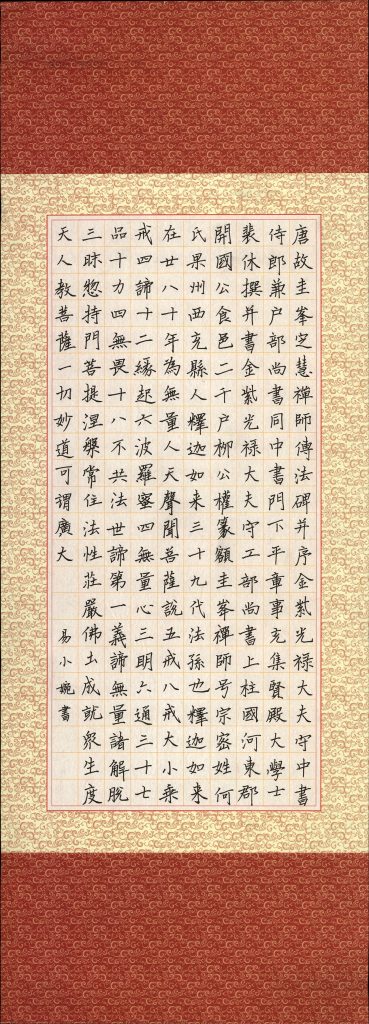 唐故圭峯定慧禪師傳法碑并序金紫光禄大夫守中書
侍郎兼户部尚書同中書門下平章事充集賢殿大學士
裴休撰并書金紫光禄大夫守工部尚書上柱國河東郡
開國公食邑二千户柳公權篆額圭峯禪師号宗密姓何
氏果州西充縣人釋迦如来三十九代法孫也釋迦如来
在廿八十年為無量人天聲聞菩薩說五戒八戒大小乘
戒四諦十二緣起六波羅蜜四無量心三明六通三十七
品十力四無畏十八不共法世諦第一義諦無量諸解脫
三昧惣持門菩提涅槃常住法性莊嚴佛土成就眾生度
天人教菩薩一切妙道可謂廣大 易小婉書